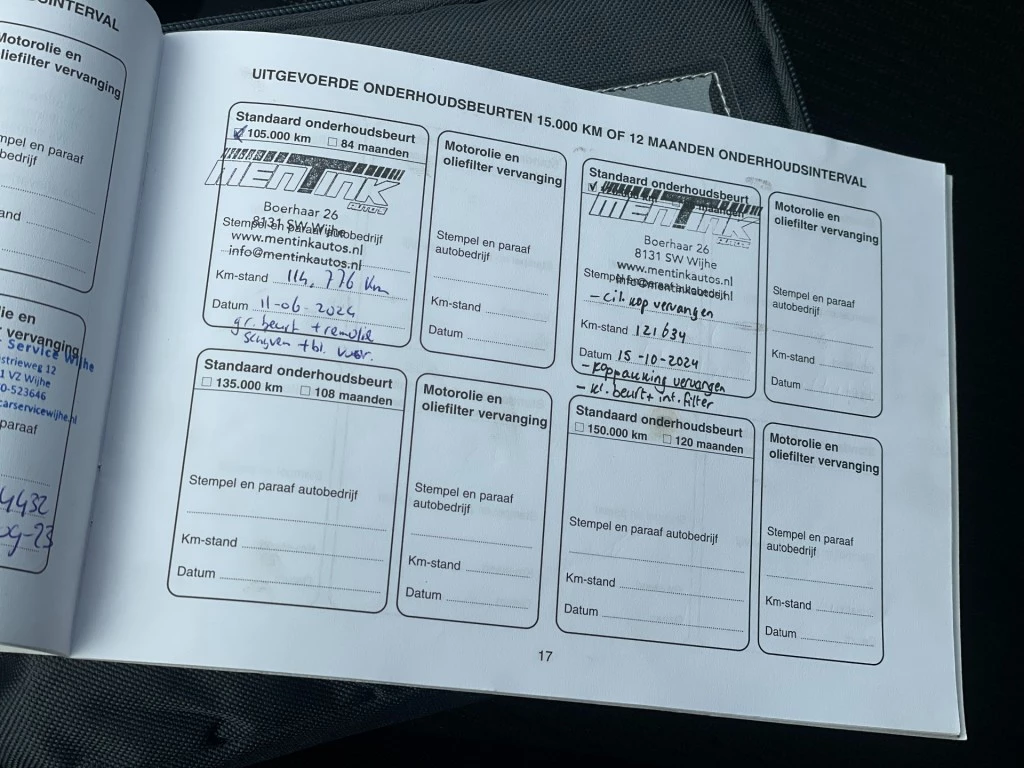 DSINTERVAL
Motorolie en
oliefilter vervanging
mpel en paraaf
obedrijf
stand
um
ie en
vervanging
Service Wijhe
strieweg 12
1 VZ Wijhe
0-523646
carservicewijhe.nl
araaf
4432
09-23
UITGEVOERDE ONDERHOUDSBEURTEN 15.000 KM OF 12 MAANDEN ONDERHOUDSINTERVAL
Standaard onderhoudsbeurt
105.000 km 84 maanden
MENTINK
AUTOS
Boerhaar 26
8131 SW Wijhe
Stempel en paraaf autobedrijf
www.mentinkautos.nl
info@mentinkautos.nl
Km-stand 114.776 km
Datum 11-06-2024
gr. beurt + remolie
schijven + bl. voor.
Motorolie en
oliefilter vervanging
Stempel en paraaf
autobedrijf
Km-stand
Datum
Standaard onderhoudsbeurt
maanden
MENTINK
AUTOS
Boerhaar 26
8131 SW Wijhe
www.mentinkautos.nl
Stempel en paraaf autobedrijf
info@mentinkautos.nl
- cil. kop vervangen
Km-stand 121634
Datum 15-10-2024
- koppakking vervangen
- kl. beurt + int. filter
Motorolie en
oliefilter vervanging
Stempel en paraaf
autobedrijf
Km-stand
Datum
Standaard onderhoudsbeurt
135.000 km 108 maanden
Stempel en paraaf autobedrijf
Km-stand
Datum
Motorolie en
oliefilter vervanging
Stempel en paraaf
autobedrijf
Km-stand
Datum
Standaard onderhoudsbeurt
150.000 km 120 maanden
Stempel en paraaf autobedrijf
Km-stand
Datum
Motorolie en
oliefilter vervanging
Stempel en paraaf
autobedrijf
Km-stand
Datum
17